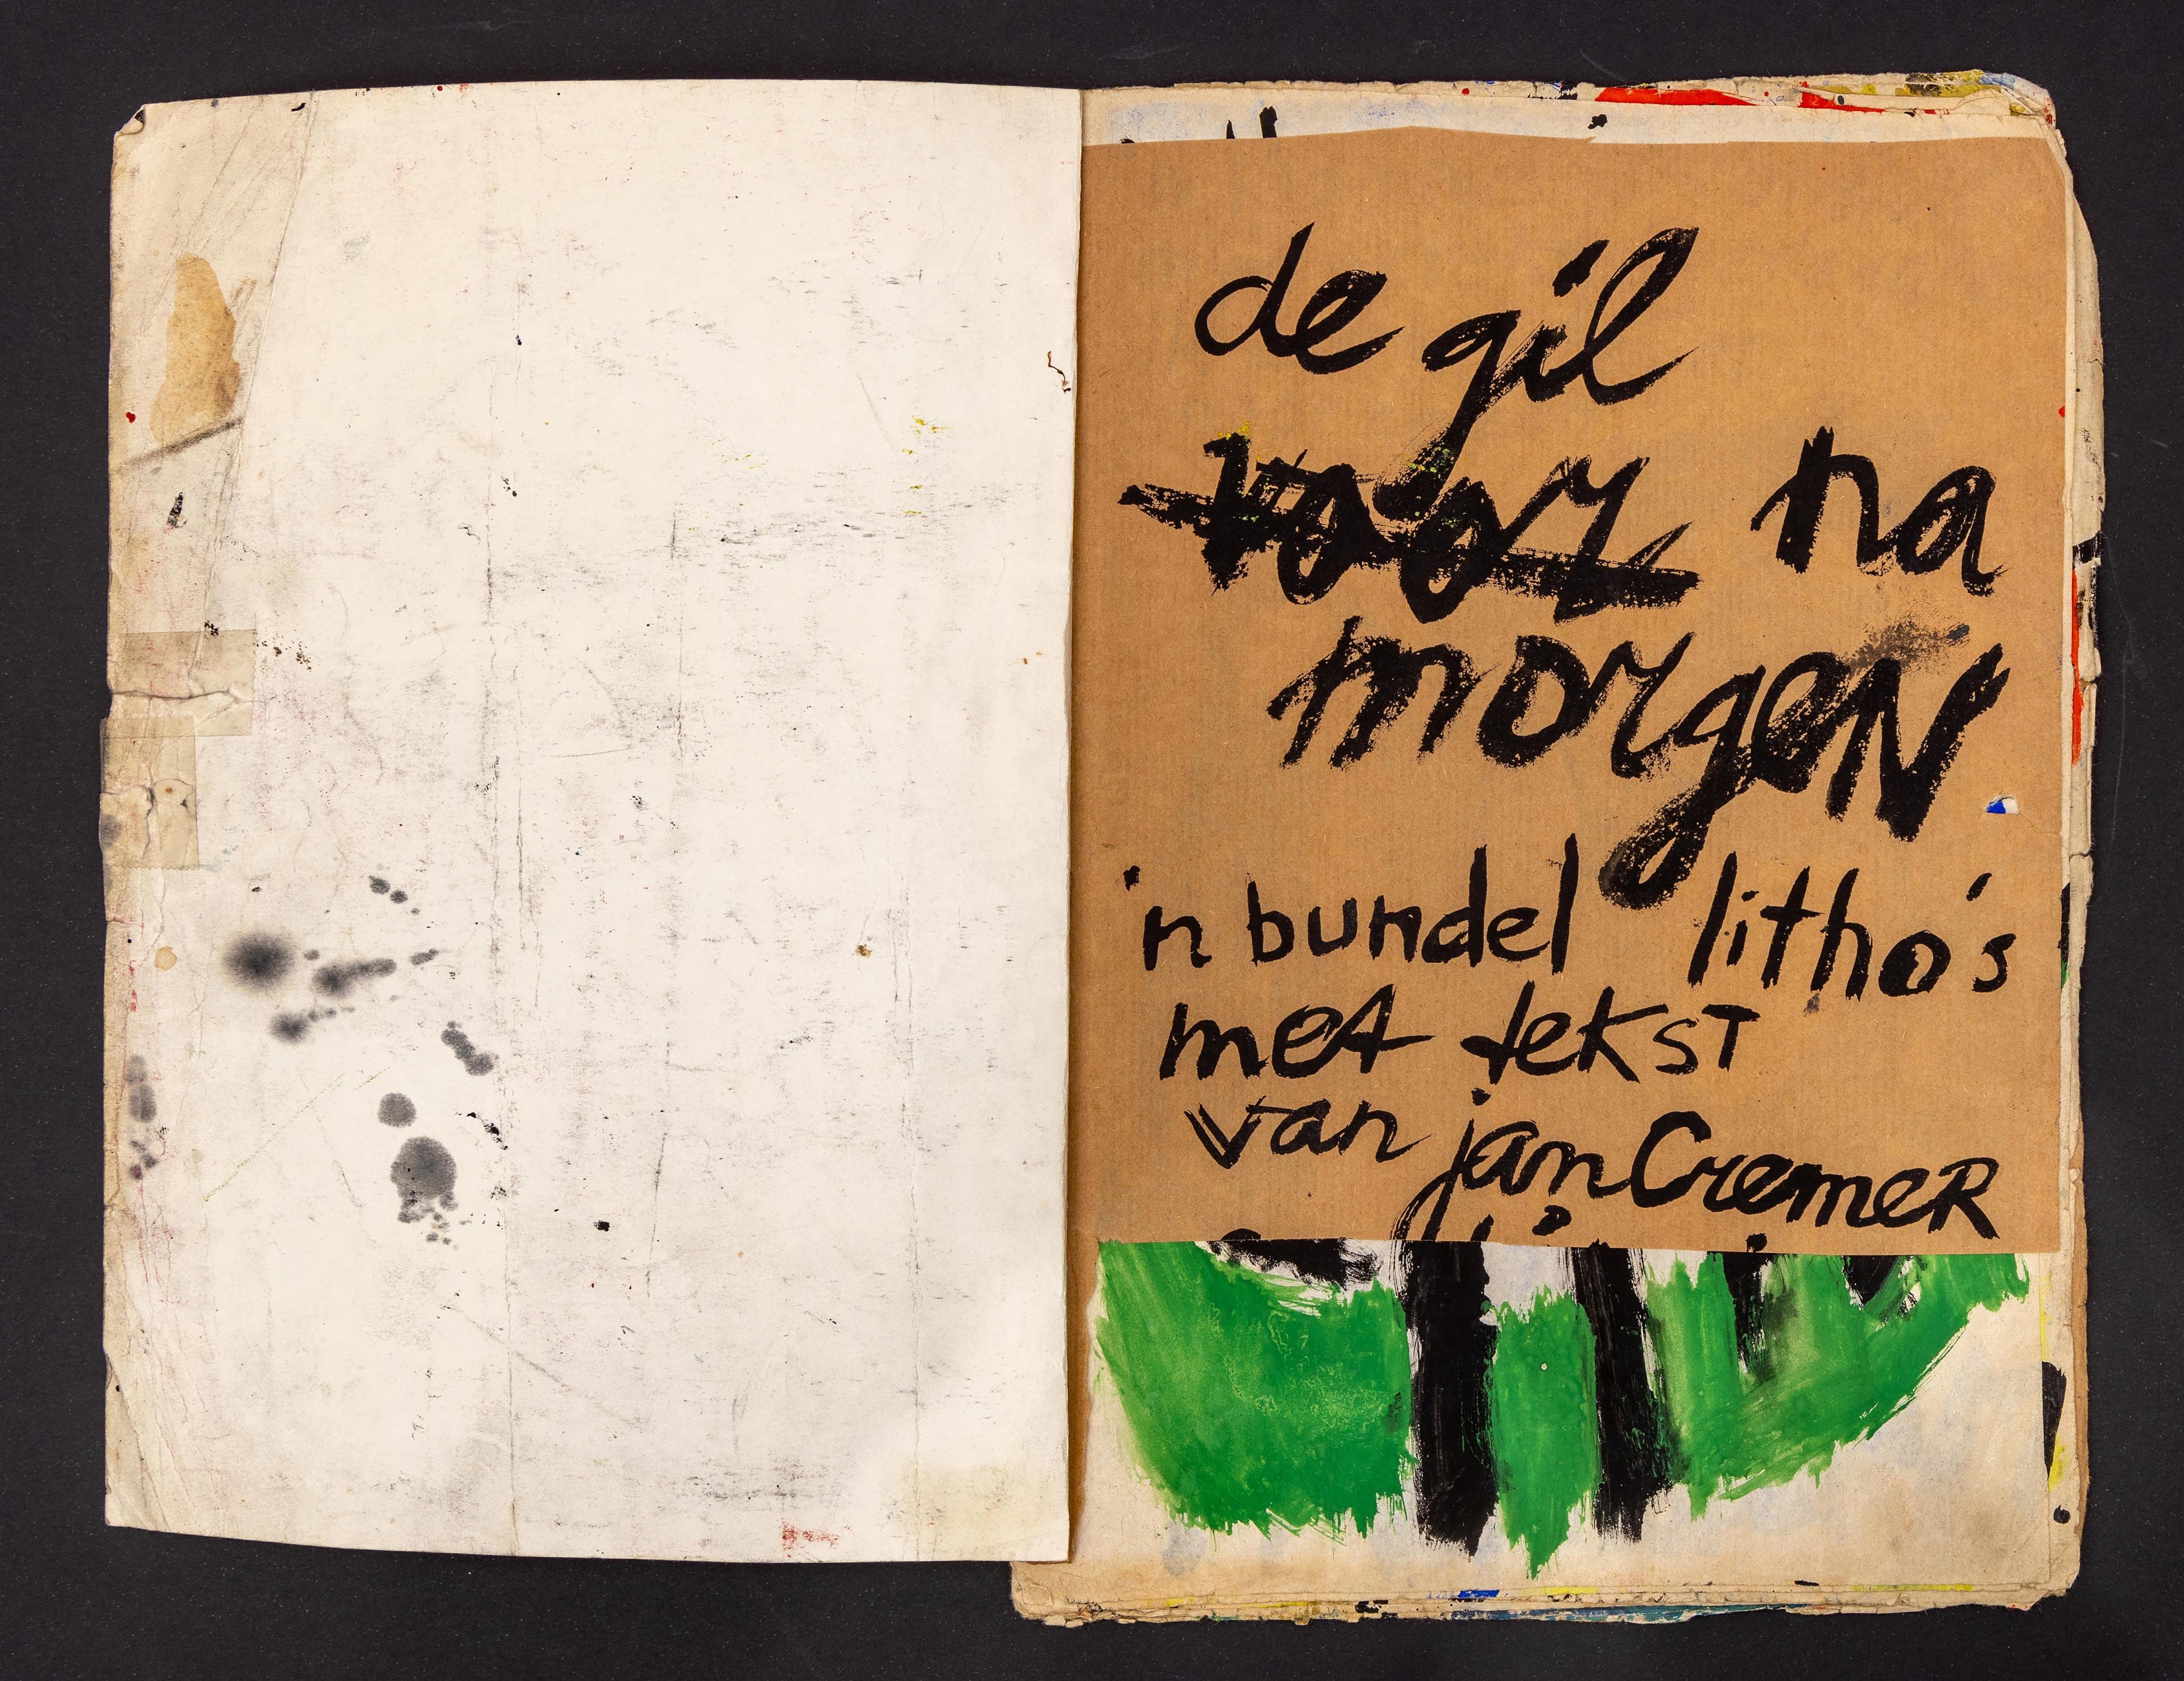 de gil
voor na
morgen
'n bundel litho's
met tekst
van jan Cremer